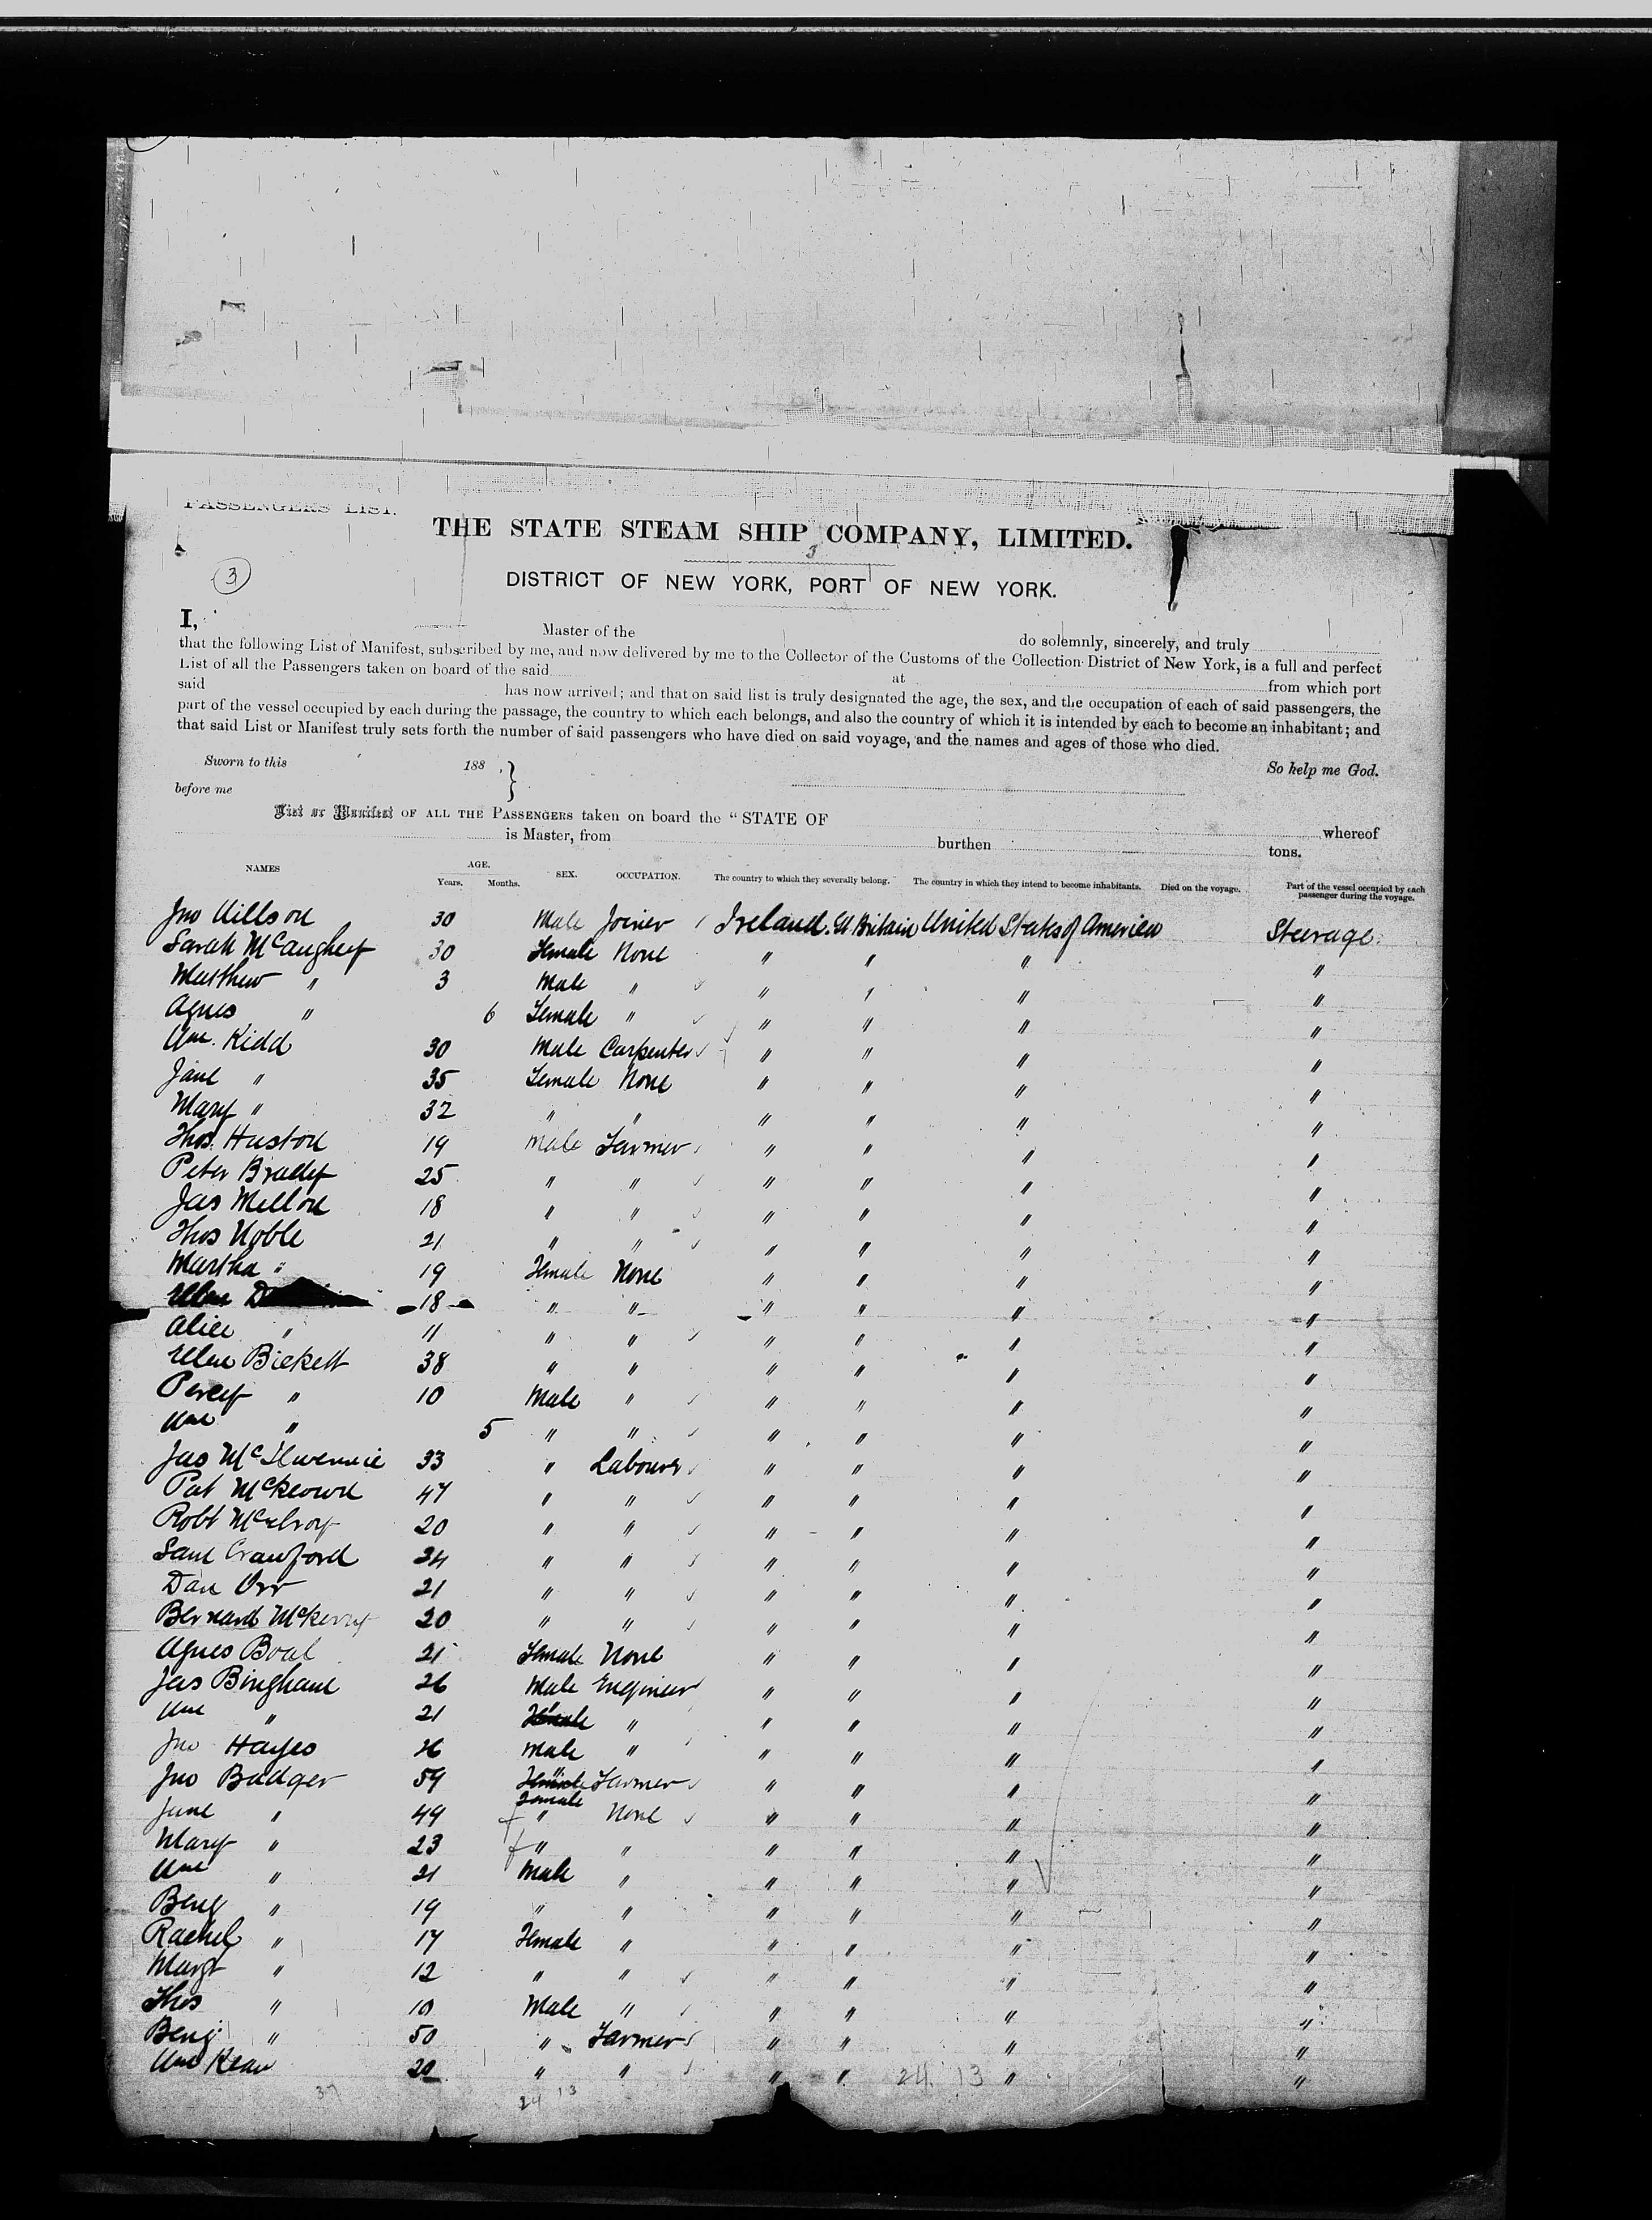 PASSENGERS LIST.
THE STATE STEAM SHIP COMPANY, LIMITED.
3
3
DISTRICT OF NEW YORK, PORT OF NEW YORK.
I, Master of the do solemnly, sincerely, and truly
that the following List of Manifest, subscribed by me, and now delivered by me to the Collector of the Customs of the Collection District of New York, is a full and perfect
List of all the Passengers taken on board of the said at from which port
said has now arrived; and that on said list is truly designated the age, the sex, and the occupation of each of said passengers, the
part of the vessel occupied by each during the passage, the country to which each belongs, and also the country of which it is intended by each to become an inhabitant; and
that said List or Manifest truly sets forth the number of said passengers who have died on said voyage, and the names and ages of those who died.
Sworn to this 188 , } So help me God.
before me
List or Manifest OF ALL THE PASSENGERS taken on board the "STATE OF whereof
is Master, from burthen tons.
NAMES AGE. Years. Months. SEX. OCCUPATION. The country to which they severally belong. The country in which they intend to become inhabitants. Died on the voyage. Part of the vessel occupied by each passenger during the voyage.
Jno Willson 30 Male Joiner Ireland. Gt Britain United States of America Steerage.
Sarah McCaughey 30 Female None " " " "
Matthew " 3 Male " " " " "
Agnes " 6 Female " " " " "
Wm. Kidd 30 Male Carpenter " " " "
Jane " 35 Female None " " " "
Mary " 32 " " " " " "
Thos. Huston 19 Male Farmer " " " "
Peter Brady 25 " " " " " "
Jas Mellon 18 " " " " " "
Thos Noble 21 " " " " " "
Martha " 19 Female None " " " "
Ellen 18 " " " " " "
Alice " 11 " " " " " "
Ellen Bickett 38 " " " " " "
Percy " 10 Male " " " " "
Wm " 5 " " " " " "
Jas McIlwennie 33 " Labourer " " " "
Pat McKeown 47 " " " " " "
Robt McElroy 20 " " " " " "
Saml Crawford 24 " " " " " "
Dan Orr 21 " " " " " "
Bernard McKerry 20 " " " " " "
Agnes Boal 21 Female None " " " "
Jas Bingham 26 Male Engineer " " " "
Wm " 21 " " " " " "
Jno Hayes 26 Male " " " " "
Jno Badger 59 " Farmer " " " "
Jane " 49 Female " None " " " "
Mary " 23 f " " " " " "
Wm " 21 Male " " " " "
Benj " 19 " " " " " "
Rachel " 17 Female " " " " "
Margt " 12 " " " " " "
Thos " 10 Male " " " " "
Benj " 50 " Farmer " " " "
Wm Kean 20 " " " " " "
37 24 13 24 13